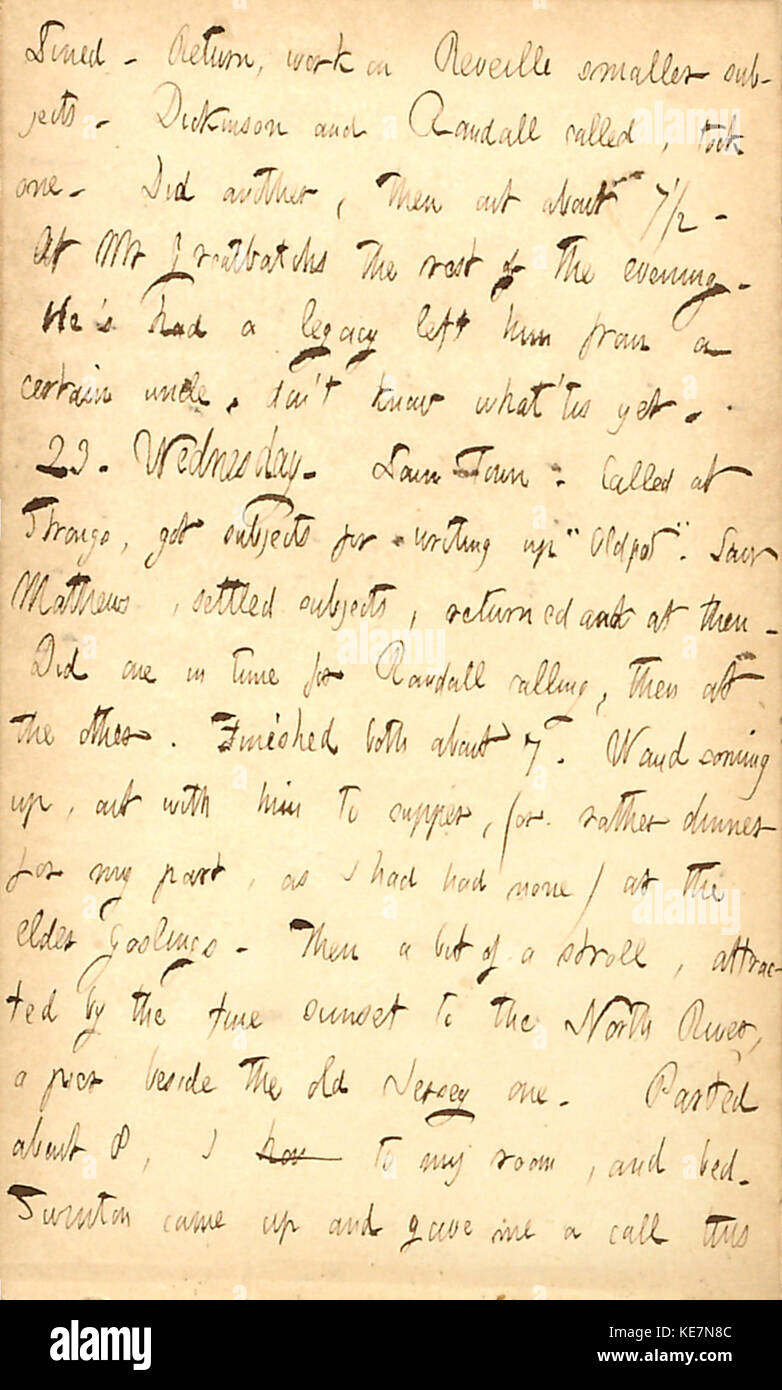 Dined - Return, work on Reveille smaller sub-
jects - Dickinson and Randall called, took
one - Did another, then out about 7 1/2 -
At Mr Greatbatchs the rest of the evening -
He's had a legacy left him from a
certain uncle, don't know what 'tis yet.
23. Wednesday - Down Town - Called at
Strongs, got subjects for writing up "Oldpot". Saw
Mathews, settled subjects, returned and at them -
Did one in time for Randall calling, then at
the other. Finished both about 7. Waud coming
up, out with him to supper, (or rather dinner
for my part, as I had had none) at the
elder Goslings - Then a bit of a stroll, attrac-
ted by the fine sunset to the North River,
a pier beside the old Jersey one - Parted
about 8, I to my room, and bed -
Swinton came up and gave me a call this
alamy
Image ID: KE7N8C
www.alamy.com